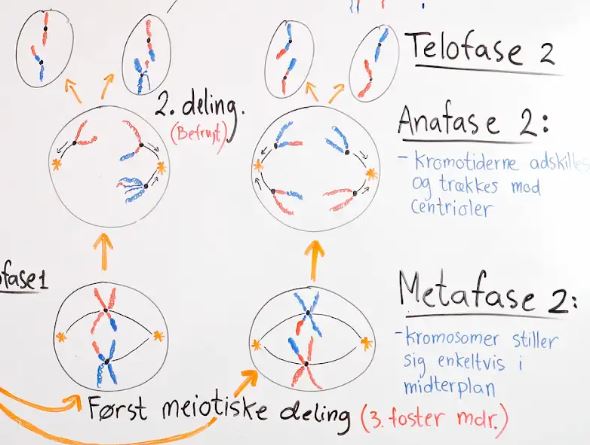 Telofase 2
2. deling.
(Befrugt)
Anafase 2:
- Kromotiderne adskilles
og trækkes mod
centrioler
fase1
Metafase 2:
- kromosomer stiller
sig enkeltvis i
midterplan
Først meiotiske deling (3. foster mdr.)